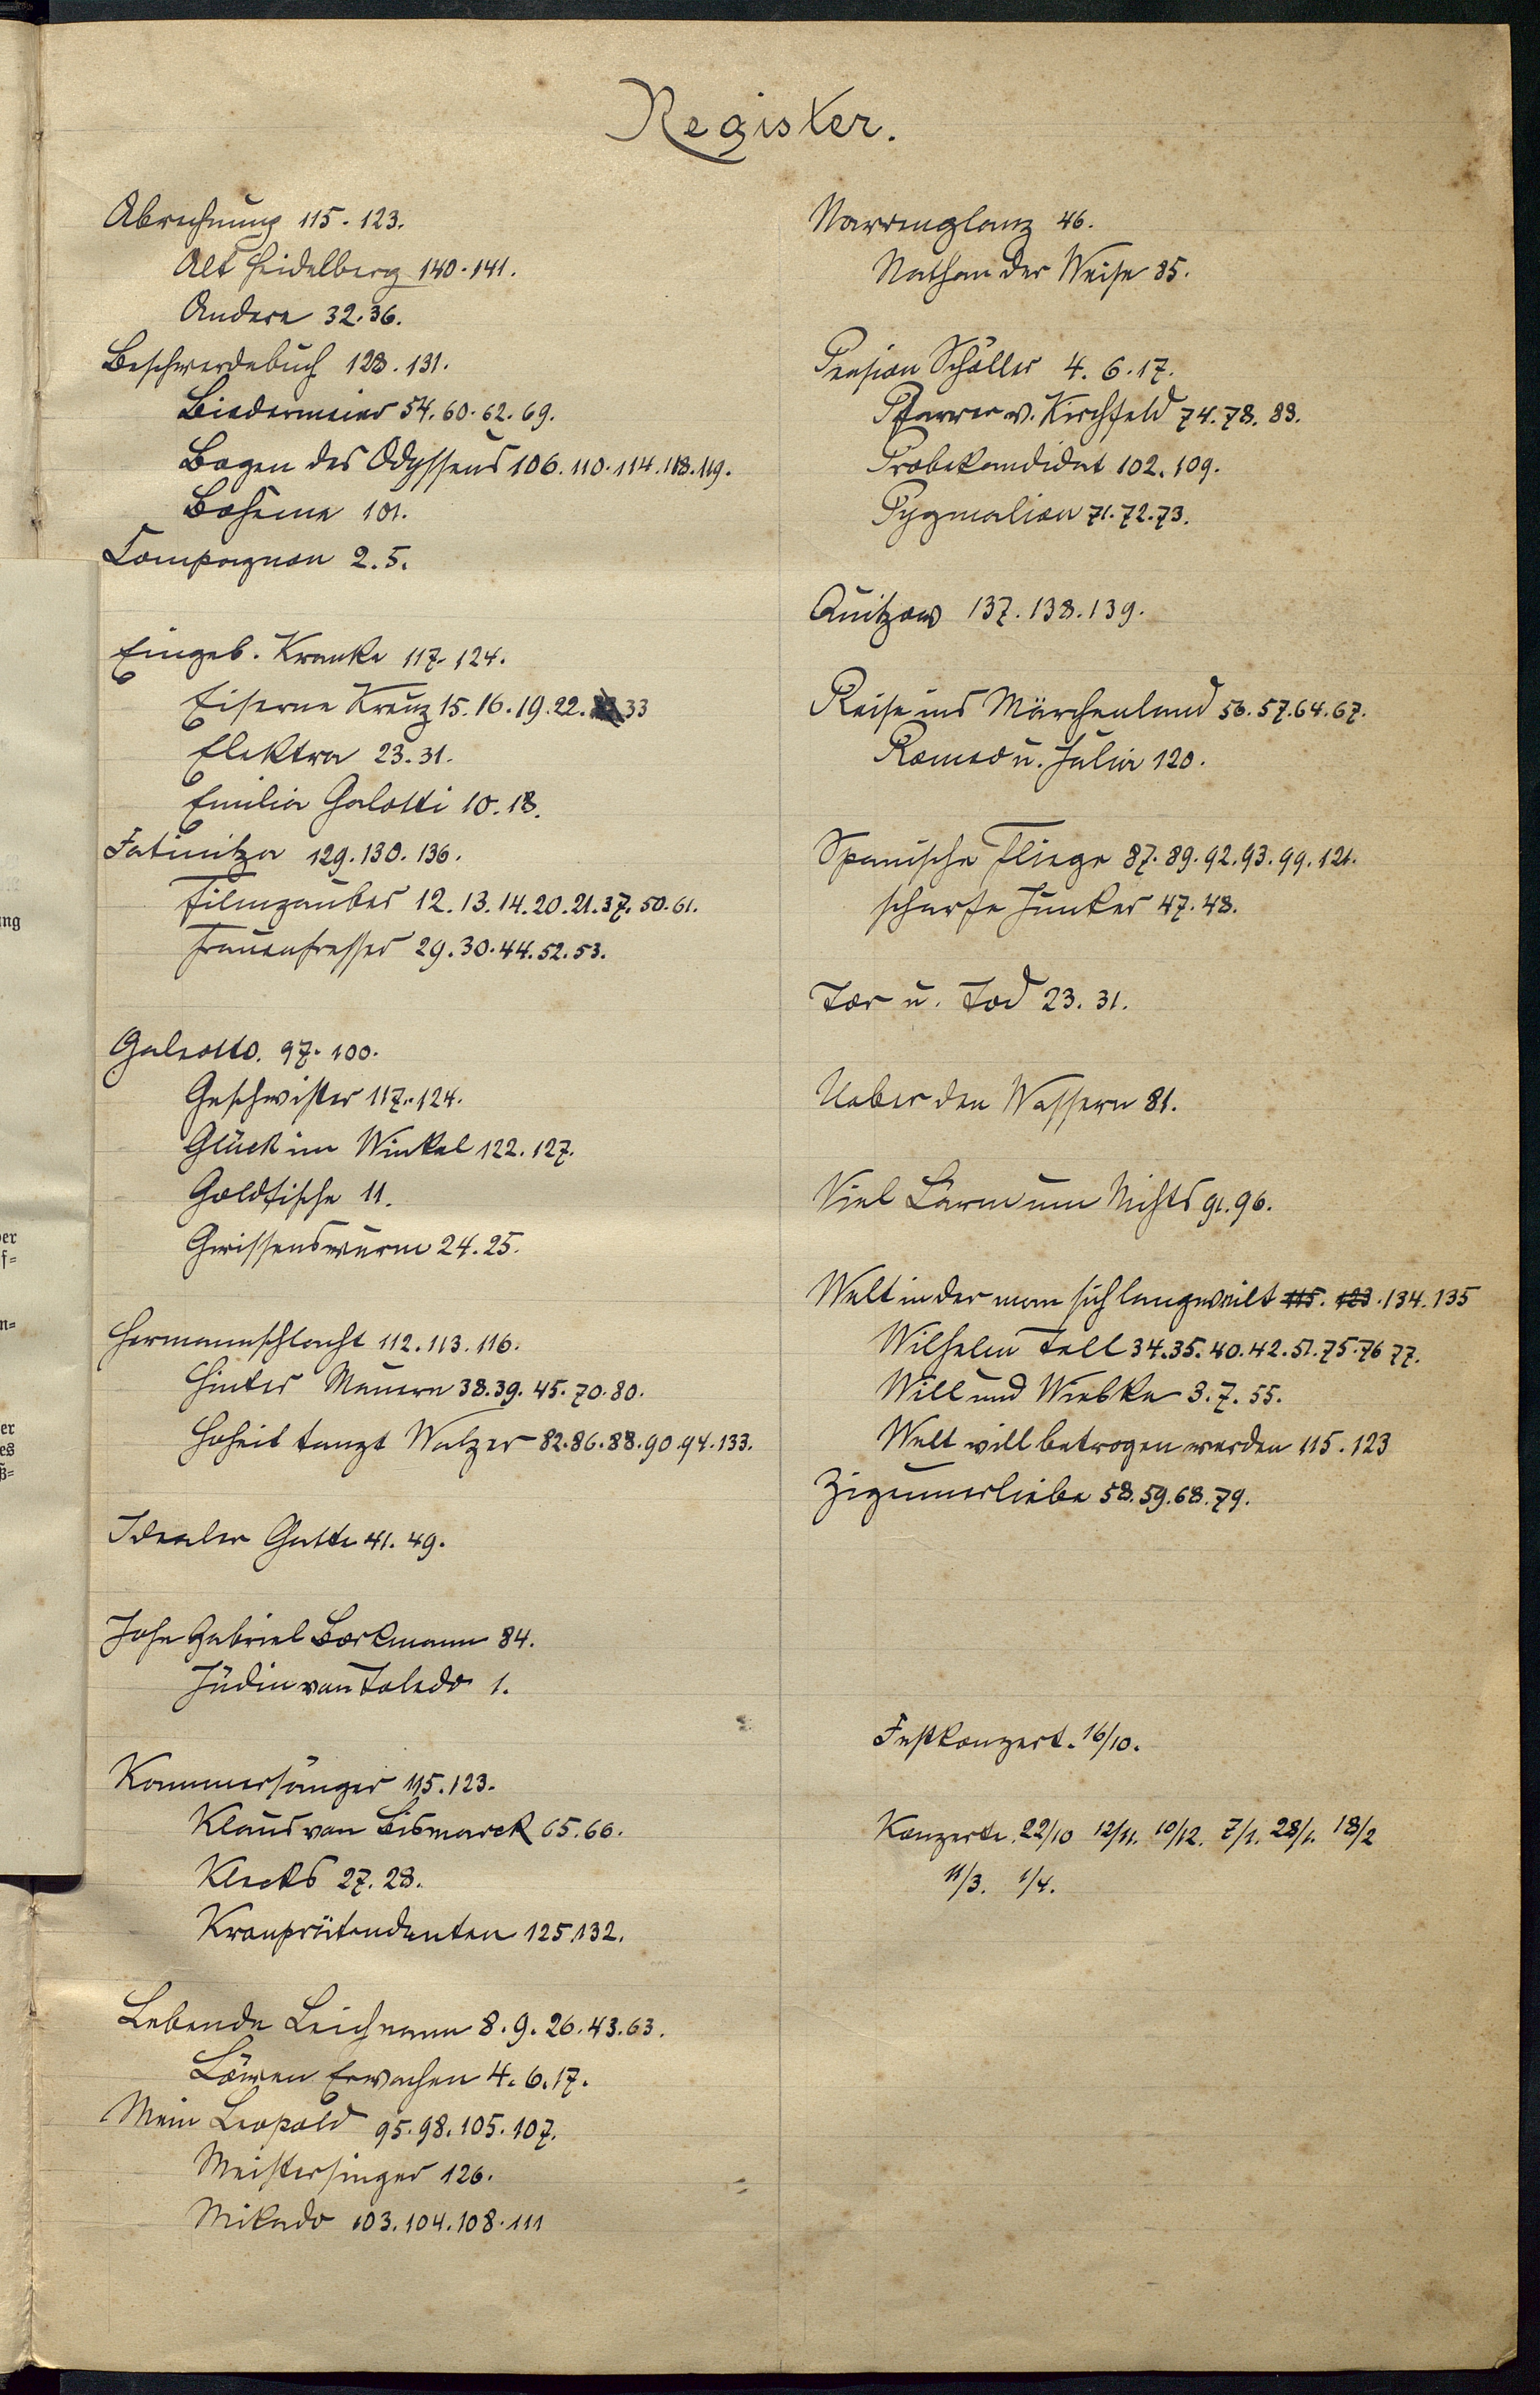 Register.
Abrechnung 115. 123.
Alt Heidelberg 140. 141.
Andere 32. 36.
Beschwerdebuch 128. 131.
Biedermeier 54. 60. 62. 69.
Bogen des Odysseus 106. 110. 114. 118. 119.
Boheme 101.
Compagnon 2. 5.
Eingeb. Kranke 117. 124.
Eiserne Kreuz 15. 16. 19. 22. 33
Elektra 23. 31.
Emilia Galotti 10. 18.
Fatinitza 129. 130. 136.
Filmzauber 12. 13. 14. 20. 21. 37. 50. 61.
Frauenfresser 29. 30. 44. 52. 53.
Galeotto. 97. 100.
Geschwister 117. 124.
Glück im Winkel 122. 127.
Goldfische 11.
Gwissenswurm 24. 25.
Hermannschlacht 112. 113. 116.
Hinter Mauern 38. 39. 45. 70. 80.
Hoheit tanzt Walzer 82. 86. 88. 90. 94. 133.
Idealer Gatte 41. 49.
John Gabriel Borkmann 84.
Jüdin von Toledo 1.
Kammersänger 115. 123.
Klaus von Bismarck 65. 66.
Klecks 27. 28.
Kronprätendenten 125. 132.
Lebende Leichnam 8. 9. 26. 43. 63.
Löwen Erwachen 4. 6. 17.
Mein Leopold 95. 98. 105. 107.
Meistersinger 126.
Mikado 103. 104. 108. 111
Narrenglanz 46.
Nathan der Weise 85.
Pension Schöller 4. 6. 17.
Pfarrer v. Kirchfeld 74. 78. 83.
Probekandidat 102. 109.
Pygmalion 71. 72. 73.
Quitzows 137. 138. 139.
Reise ins Märchenland 56. 57. 64. 67.
Romeo u. Julia 120.
Spanische Fliege 87. 89. 92. 93. 99. 121.
scharfe Junker 47. 48.
Tor u. Tod 23. 31.
Ueber den Wassern 81.
Viel Lärm um Nichts 91. 96.
Welt in der man sich langweilt 115. 123. 134. 135
Wilhelm Tell 34. 35. 40. 42. 51. 75. 76 77.
Will und Wiebke 3. 7. 55.
Welt will betrogen werden 115. 123
Zigeunerliebe 58. 59. 68. 79.
Festkonzert. 16/10.
Konzerte. 22/10 12/11. 10/12. 7/1. 28/1. 18/2
11/3. 1/4.